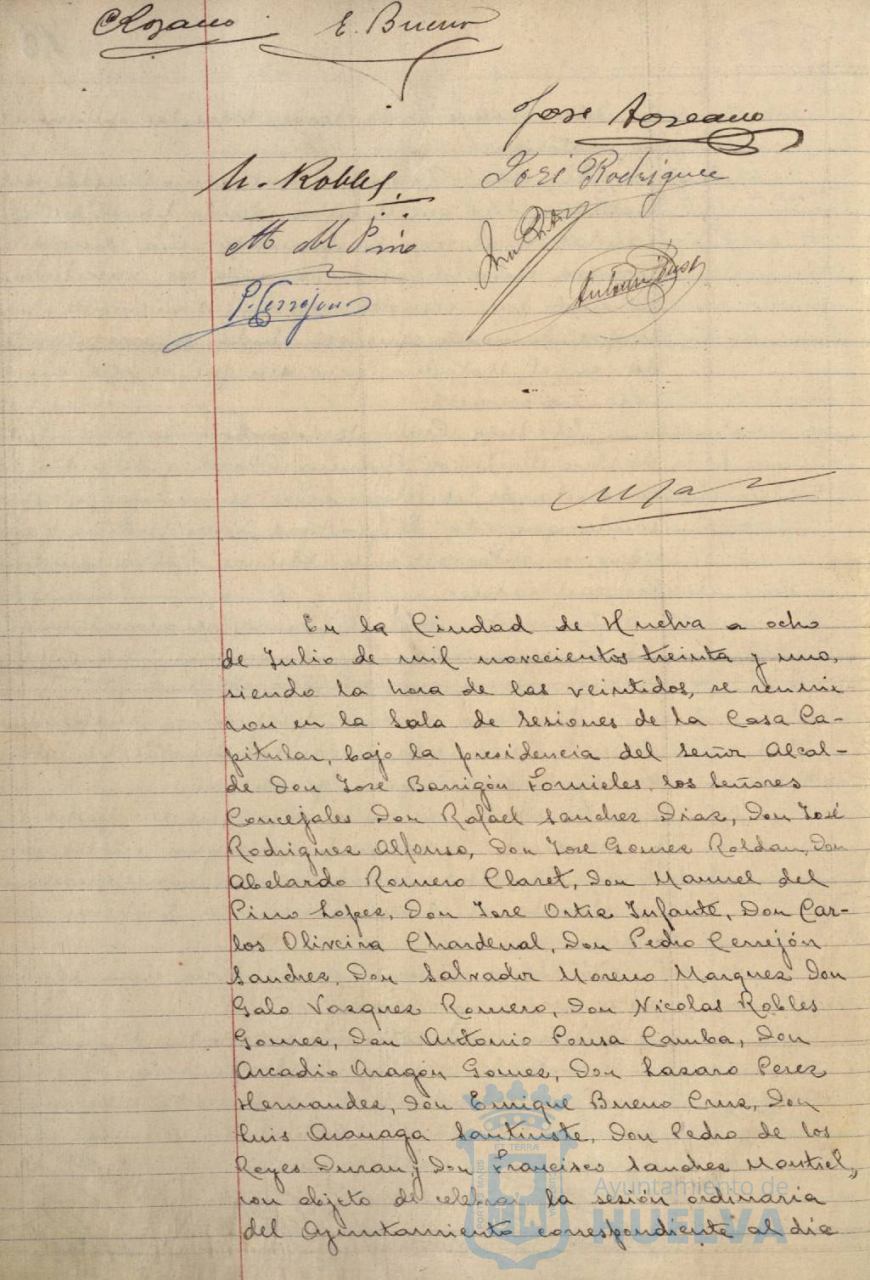 E. Bueno
José
N. Robles
José Rodriguez
M M Pino
P. Cerrejon
Antonio Pousa
En la Ciudad de Huelva a ocho
de Julio de mil novecientos treinta y uno,
siendo la hora de las veintidos, se reunie
ron en la Sala de Sesiones de la Casa Ca-
pitular, bajo la presidencia del Señor Alcal-
de Don José Barrigón Fornieles, los Señores
Concejales Don Rafael Sanchez Diaz, Don José
Rodriguez Alfonso, Don José Gomez Roldan, Don
Abelardo Romero Claret, Don Manuel del
Pino Lopez, Don José Ortiz Infante, Don Car-
los Oliveira Chardenal, Don Pedro Cerrejón
Sanchez, Don Salvador Moreno Marquez Don
Galo Vazquez Romero, Don Nicolas Robles
Gomez, Don Antonio Pousa Camba, Don
Arcadio Aragón Gomez, Don Lazaro Perez
Hernandez, Don Enrique Bueno Cruz, Don
Luis Don Pedro de los
Reyes Duran y Don Francisco Sanchez Montiel,
con objeto de celebrar la sesión ordinaria
del Ayuntamiento correspondiente al dia
Ayuntamiento de
HUELVA